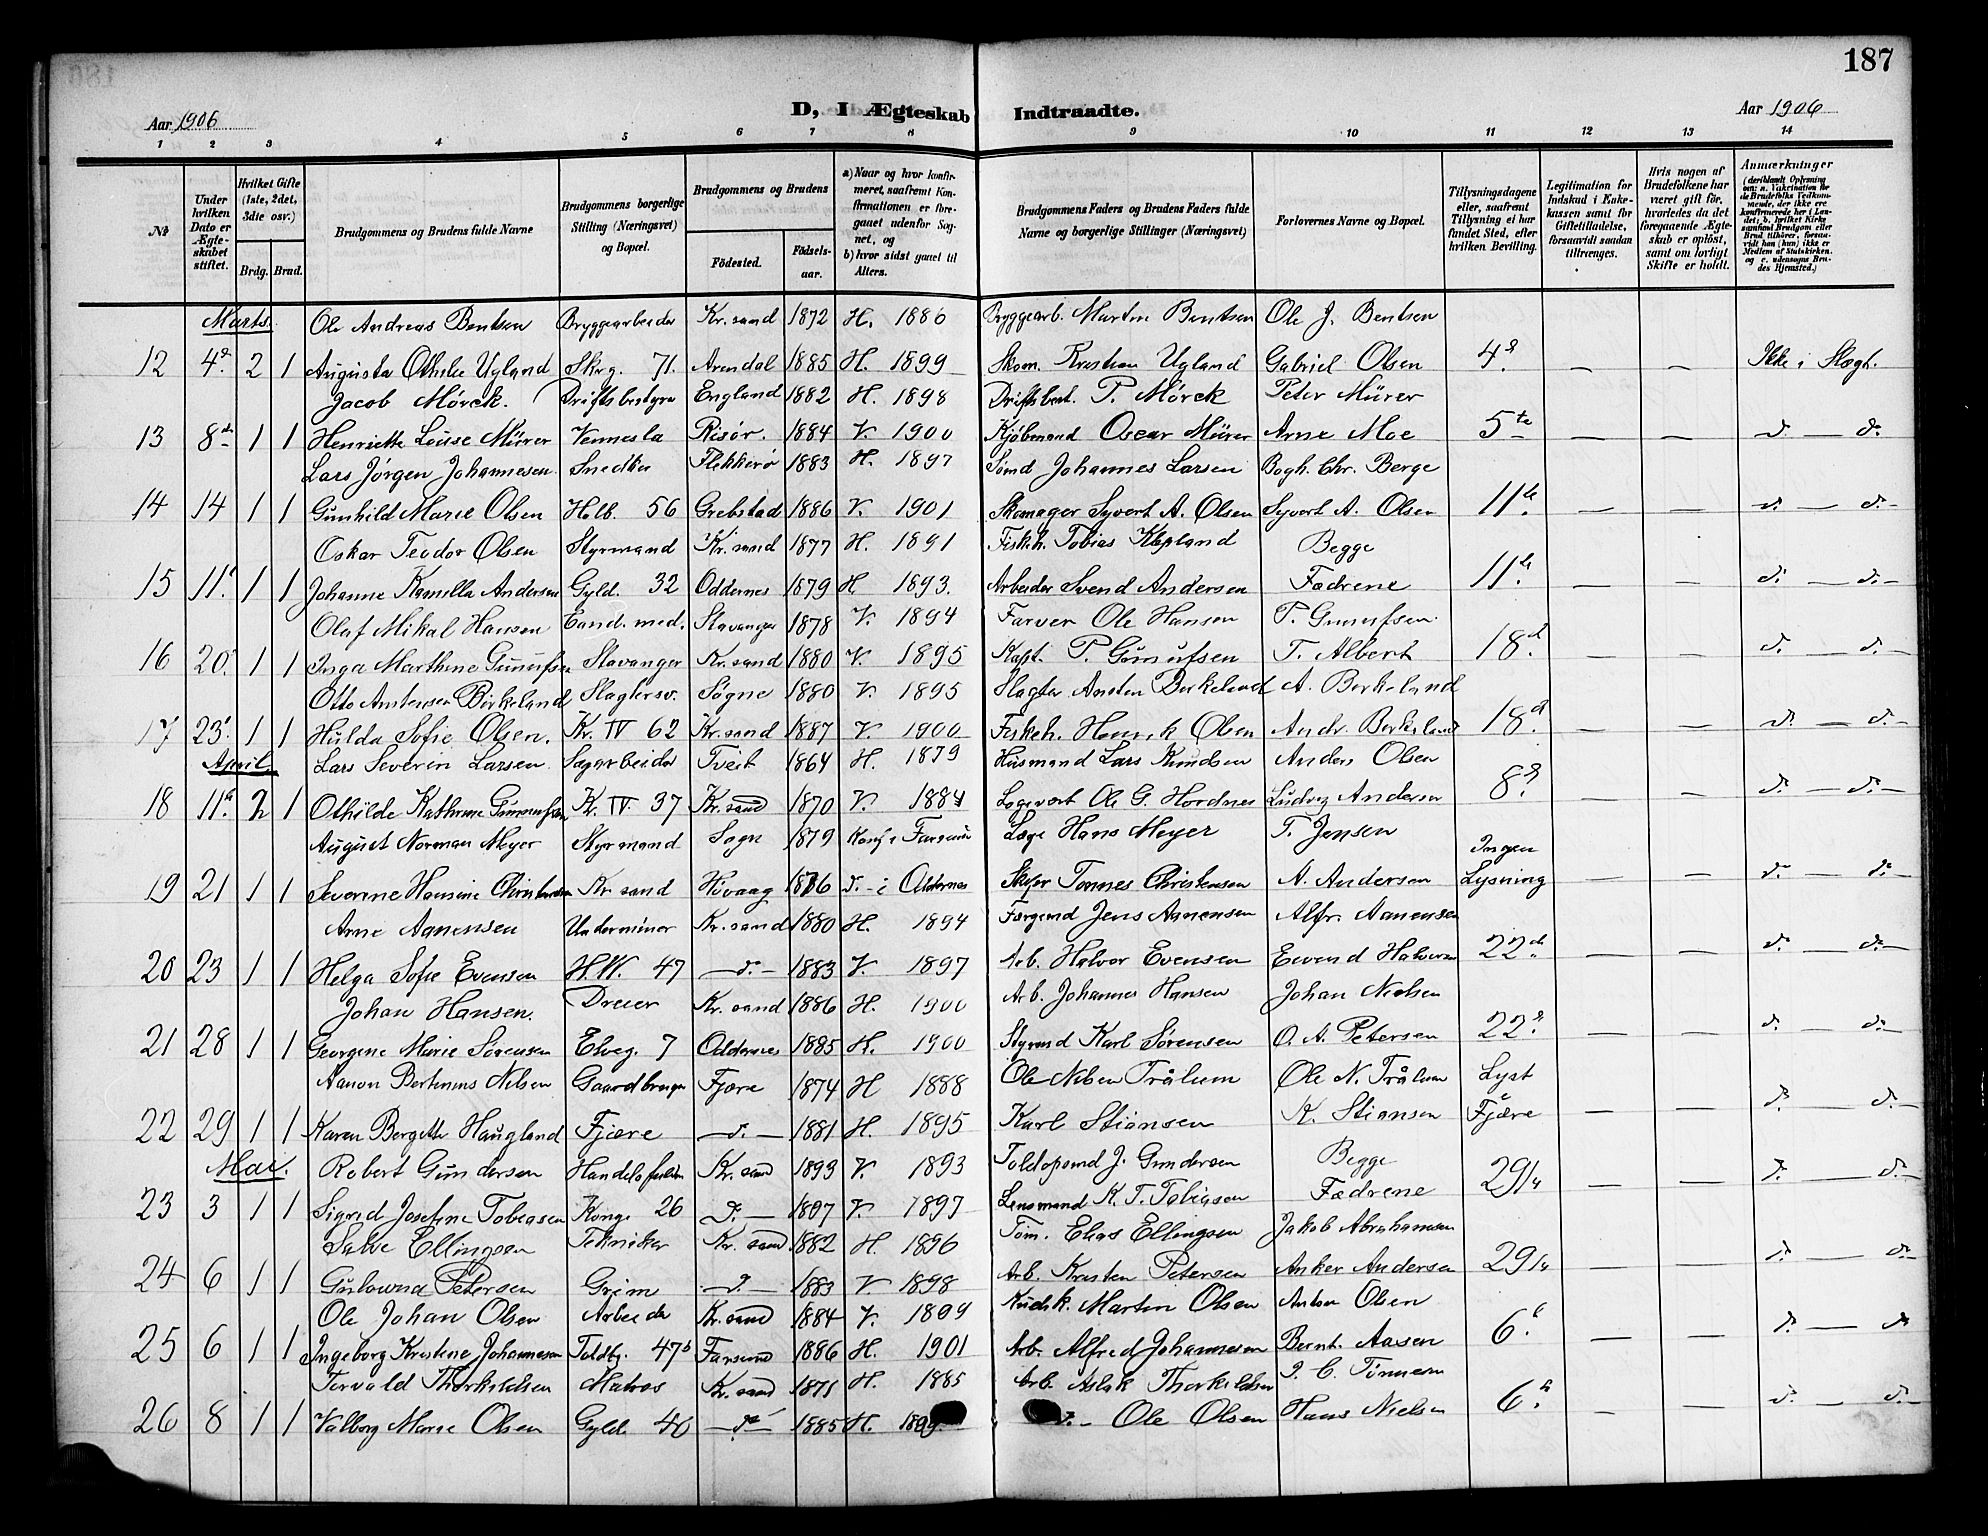 187
D, I Ægteskab Indtraadte.
Aar 1906
Aar 1906
1 2 3 4 5 6 7 8 9 10 11 12 13 14
№
Under hvilken Dato er Ægteskabet stiftet.
Hvilket Gifte (1ste, 2det, 3die osv.)
Brdg. Brud.
Brudgommens og Brudens fulde Navne
Brudgommens borgerlige Stilling (Næringsvei) og Bopæl.
Brudgommens og Brudens
Fødested.
Fødselsaar.
a) Naar og hvor konfirmeret, saafremt Konfirmationen er foregaaet udenfor Sognet, og
b) hvor sidst gaaet til Alters.
Brudgommens Faders og Brudens Faders fulde Navne og borgerlige Stillinger (Næringsvei)
Forlovernes Navne og Bopæl.
Tillysningsdagene eller, saafremt Tillysning ei har fundet Sted, efter hvilken Bevilling.
Legitimation for Indskud i Enkekassen samt for Giftetilladelse, forsaavidt saadan tiltrænges.
Hvis nogen af Brudefolkene har været gift før, hvorledes da det foregaaende Ægteskab er opløst, samt om lovligt Skifte er holdt.
Anmærkninger
Marts. Ole Andreas Bentsen Bryggearbeider Kr.sand 1872 H. 1886 Bryggearb. Martin Bentsen Ole J. Bentsen
12 4 2 1 Augusta Othilie Ugland Skrg. 71. Arendal 1885 H. 1899 Skom. Kristian Ugland Gabriel Olsen 4 — — Ikke i Slægt.
Jacob Mörck. Driftsbestyrer England 1882 H. 1898 Driftsbest. P. Mörck Peter Mürer
13 8 1 1 Henriette Louise Mürer Vennesla Risör. 1884 V. 1900 Kjöbmand Oscar Mürer Arne Moe 5te — — d. — d.
Lars Jörgen Johannesen Snedker Flekkerö 1883 H. 1897 Sömd Johannes Larsen Bogh. Chr. Berge
14 14 1 1 Gunhild Marie Olsen Holb. 56 Grebstad 1886 V. 1901 Skomager Syvert A. Olsen Syvert A. Olsen 11 — — d. — d.
Oskar Teodor Olsen Styrmand Kr.sand 1877 H. 1891 Fiskeh. Tobias Klepland Begge
15 11 1 1 Johanne Kamilla Andersen Gyld. 32 Oddernes 1879 H 1893. Arbeider Svend Andersen Fædrene 11 — — d. — d.
Olaf Mikal Hansen Cand. med. Stavanger 1878 V. 1894 Farver Ole Hansen P. Gunufsen
16 20 1 1 Inga Marthine Gunufsen Stavanger Kr.sand 1880 V. 1895 Kapt. P. Gunufsen T. Albert 18 — — d. — d.
Otto Anstensen Birkeland Slagtersv. Sögne 1880 V. 1895 Slagter Ansten Berkeland A. Berkeland
17 23 1 1 Hulda Sofie Olsen. Kr. IV 62 Kr.sand 1887 V. 1900 Fiskeh. Henrik Olsen Andr. Berkeland 18 — — d. — d.
April. Lars Severin Larsen Sagarbeider Tveit 1864 H. 1879 Husmand Lars Knudsen Anders Olsen
18 11 2 1 Othilde Kathrine Gunnufsen Kr. IV. 37 Kr.sand 1870 V. 1884 Ole G. Hordnes Ludvig Andersen 8 — — d. — d.
August Norman Meyer Styrmand Sogn 1879 Konf. i Farsund Læge Hans Meyer T. Jensen Ingen
19 21 1 1 Severine Hansine Christensen Kr.sand Hövaag 1876 d. i Oddernes Skipr Tönnes Christensen A. Andersen Lysning — — d. — d.
Arne Aanensen Underminör Kr.sand 1880 H. 1894 Færgemd Jens Aanensen Alfr. Aanensen
20 23 1 1 Helga Sofie Evensen H.W. 47 — d. — 1883 V. 1897 Arb. Halvor Evensen Eivind Halvorsen 22 — — d. — d.
Johan Hansen. Dreier Kr.sand 1886 H. 1900 Arb. Johannes Hansen Johan Nielsen
21 28 1 1 Georgine Marie Sörensen Elveg. 7 Oddernes 1885 H. 1900 Styrmd Karl Sörensen O. A. Petersen 22 — — d. — d.
Aanon Bertinius Nilsen Gaardbruger Fjære 1874 H 1888 Ole Nilsen Trålum Ole N. Trålum Lyst
22 29 1 1 Karen Bergitte Haugland Fjære — d. — 1881 H. 1895 Karl Stiansen K. Stiansen i Fjære — — d. — d.
Mai. Robert Gundersen Handelsfuldm. Kr.sand 1893 V. 1893 Toldopsmd J. Gundersen Begge
23 3 1 1 Sigrid Josefine Tobiasen Konge 26 d. — 1897 V. 1897 Lensmand K. T. Tobiasen Fædrene 29/4 — — d. — d.
Salve Ellingsen Tekniker Kr.sand 1882 H. 1896 Töm. Elias Ellingsen Jakob Abrahamsen
24 6 1 1 Gurlowna Petersen Grim — d. — 1883 V. 1898 Arb. Kristen Petersen Anker Andersen 29/4 — — d. — d.
Ole Johan Olsen Arbeider Kr.sand 1884 V. 1899 Kudsk. Martin Olsen Anton Olsen
25 6 1 1 Ingeborg Kristine Johannesen Toldbg. 47b Farsund 1886 H. 1901 Arb. Alfred Johannesen Bernt. Aasen 6 — — d. — d.
Torvald Thorkildsen Matros Kr.sand 1871 H. 1885 Arb. Aslak Thorkildsen J. C. Tönnesen
26 8 1 1 Valborg Marie Olsen Gyld. 40 — d. — 1885 H. 1899 d. — Ole Olsen Hans Nielsen 6 — — d. — d.